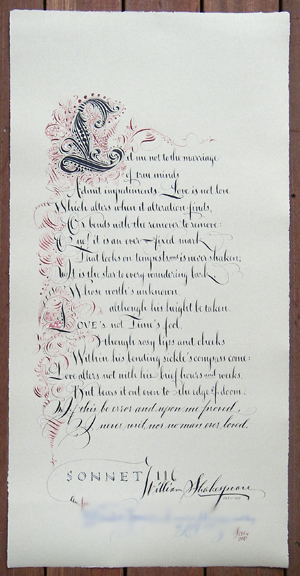 Let me not to the marriage
of true minds
Admit impediments Love is not love
Which alters when it alteration finds,
Or bends with the remover to remove:
O no! it is an ever-fixed mark
That looks on tempests and is never shaken;
It is the star to every wandering bark,
Whose worth's unknown
although his height be taken.
LOVE's not Time's fool,
though rosy lips and cheeks
Within his bending sickle's compass come:
Love alters not with his brief hours and weeks,
But bears it out even to the edge of doom:
If this be error and upon me proved,
I never writ nor no man ever loved.
SONNET 116
William Shakespeare